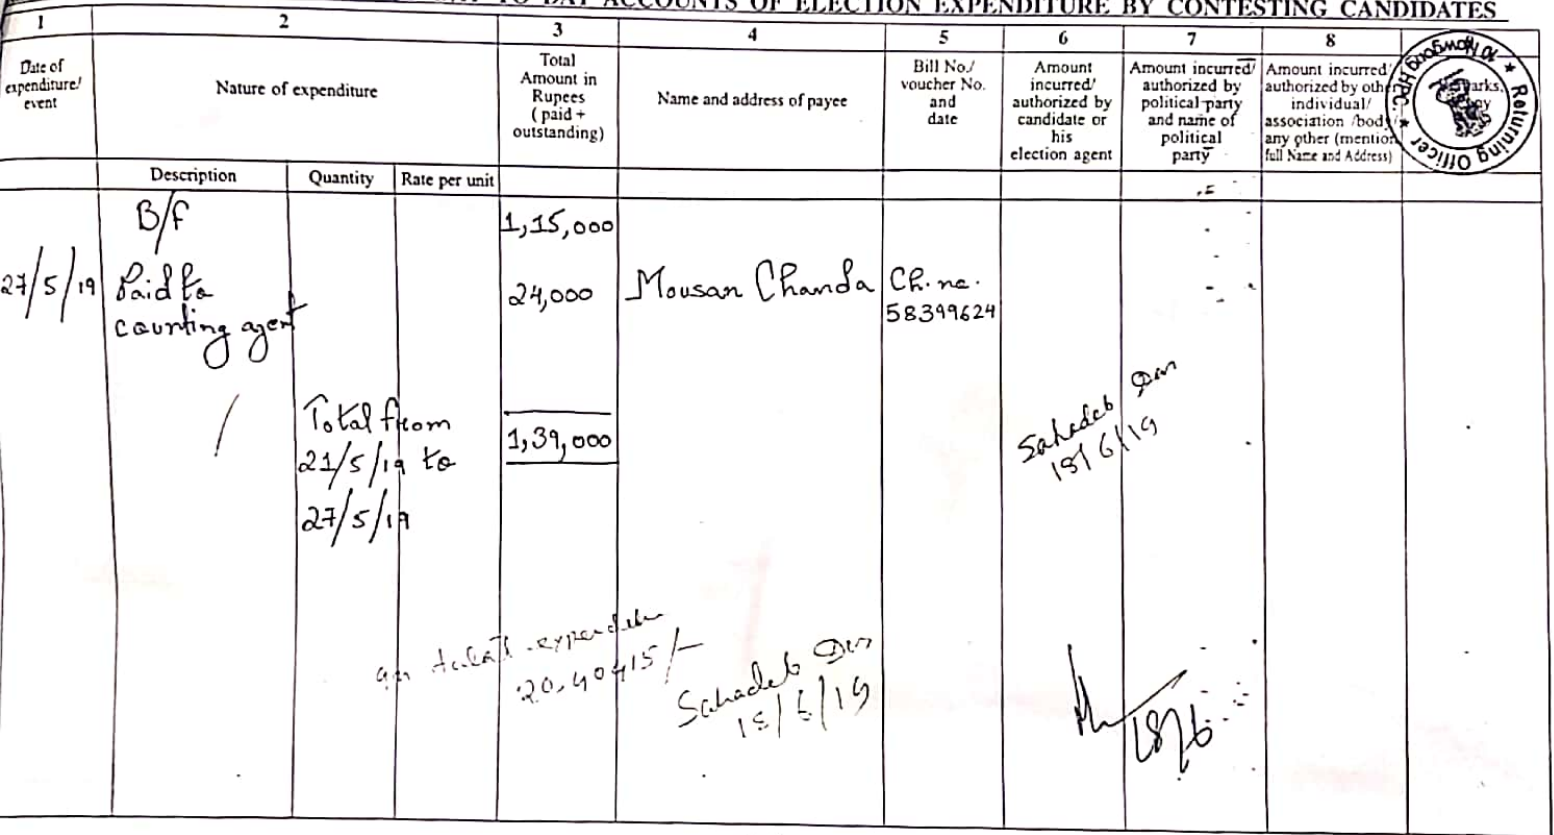 TO DAY ACCOUNTS OF ELECTION EXPENDITURE BY CONTESTING CANDIDATES
1 2 3 4 5 6 7 8
Date of
expenditure/
event
Nature of expenditure
Total
Amount in
Rupees
( paid +
outstanding)
Name and address of payee
Bill No./
voucher No.
and
date
Amount
incurred/
authorized by
candidate or
his
election agent
Amount incurred/
authorized by
political party
and name of
political
party
Amount incurred/
authorized by othe
individual/
association /body/
any other (mention
full Name and Address)
Returning Officer
HPC.
Description Quantity Rate per unit
B/f 1,15,000
27/5/19 Paid to 24,000 Mousan Chanda Ch. no.
counting agent 58399624
Total from 1,39,000
21/5/19 to
27/5/19
Sahadeb Das
18/6/19
expenditu
20,40415/-
Sahadeb Das
18/6/19
18/6